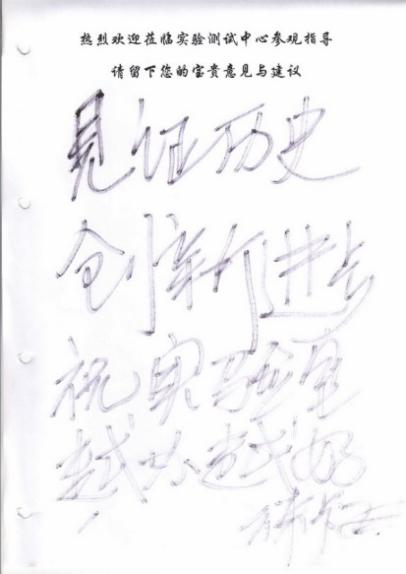 热烈欢迎莅临实验测试中心参观指导
请留下您的宝贵意见与建议
见证历史
创新进步
祝实验室
越办越好
！